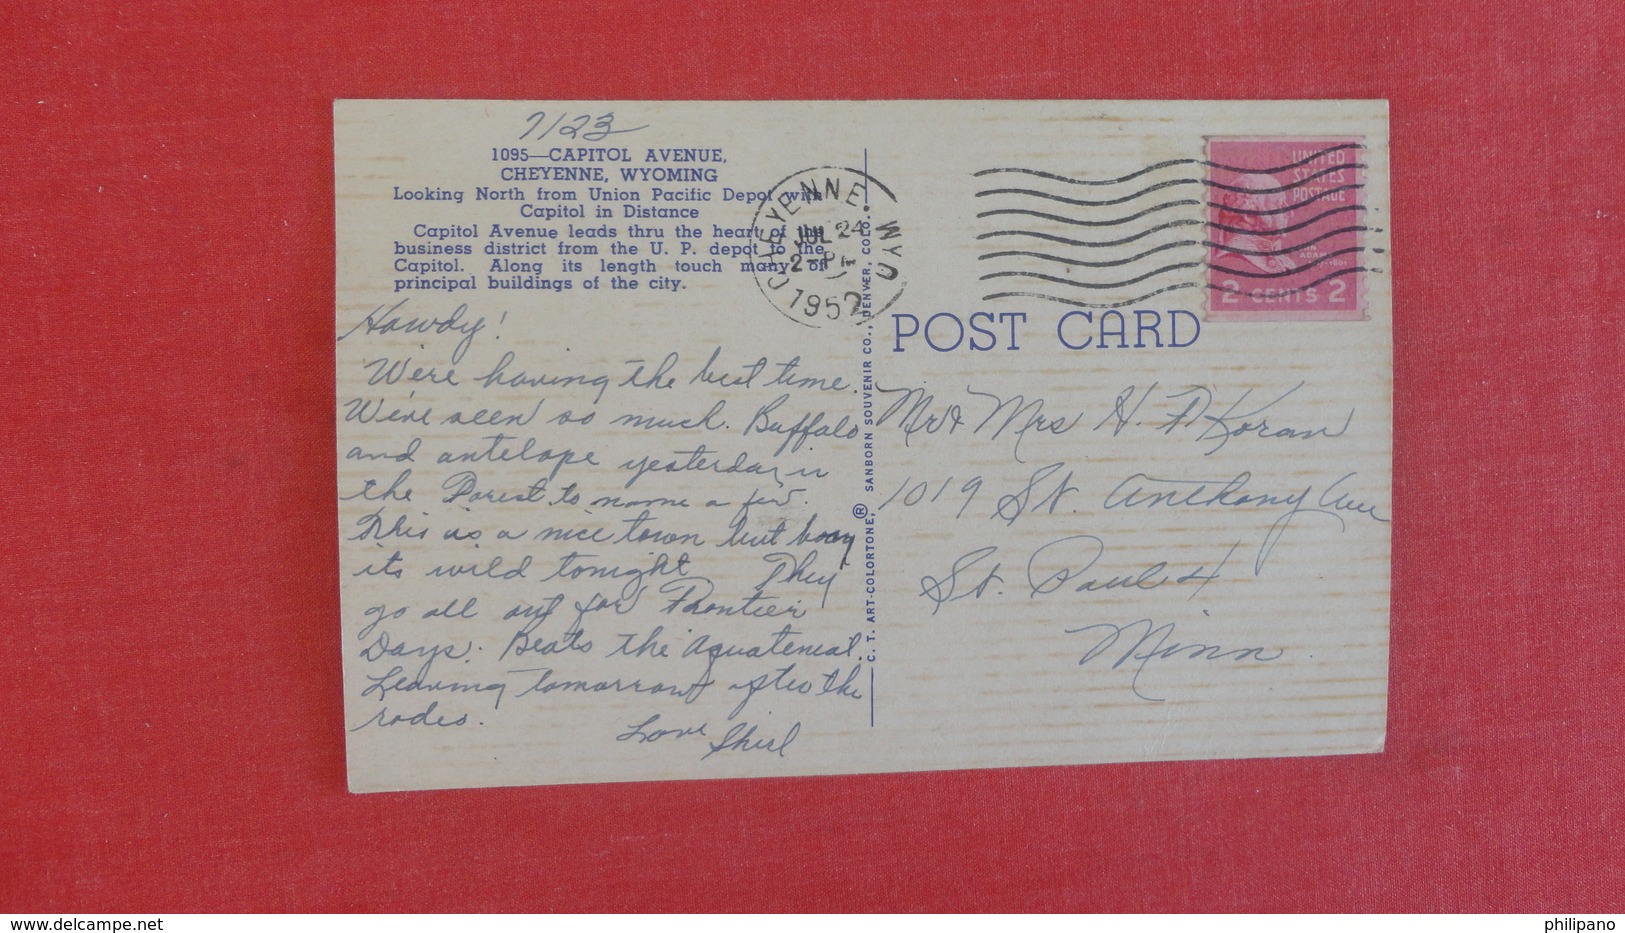 7/23
1095—CAPITOL AVENUE,
CHEYENNE, WYOMING
Looking North from Union Pacific Depot with
Capitol in Distance
Capitol Avenue leads thru the heart of the
business district from the U. P. depot to the
Capitol. Along its length touch many of
principal buildings of the city.
Howdy!
We're having the best time.
We've seen so much. Buffalo
and antelope yesterday in
the Forest to name a few.
This is a nice town but boay
its wild tonight They
go all out for Frontier
Days. Beats the Aquatenial.
Leaving tomorrow after the
rodeo.
Love Shirl
CHEYENNE. WYO
JUL 24
2-PM
1952
C. T. ART-COLORTONE, ® SANBORN SOUVENIR CO., DENVER, COLO.
POST CARD
UNITED
STATES
POSTAGE
JOHN
ADAMS
2 CENTS 2
Mr & Mrs H. F. Koran
1019 St. Anthony Ave
St. Paul 4
Minn.
delcampe.net
philipano